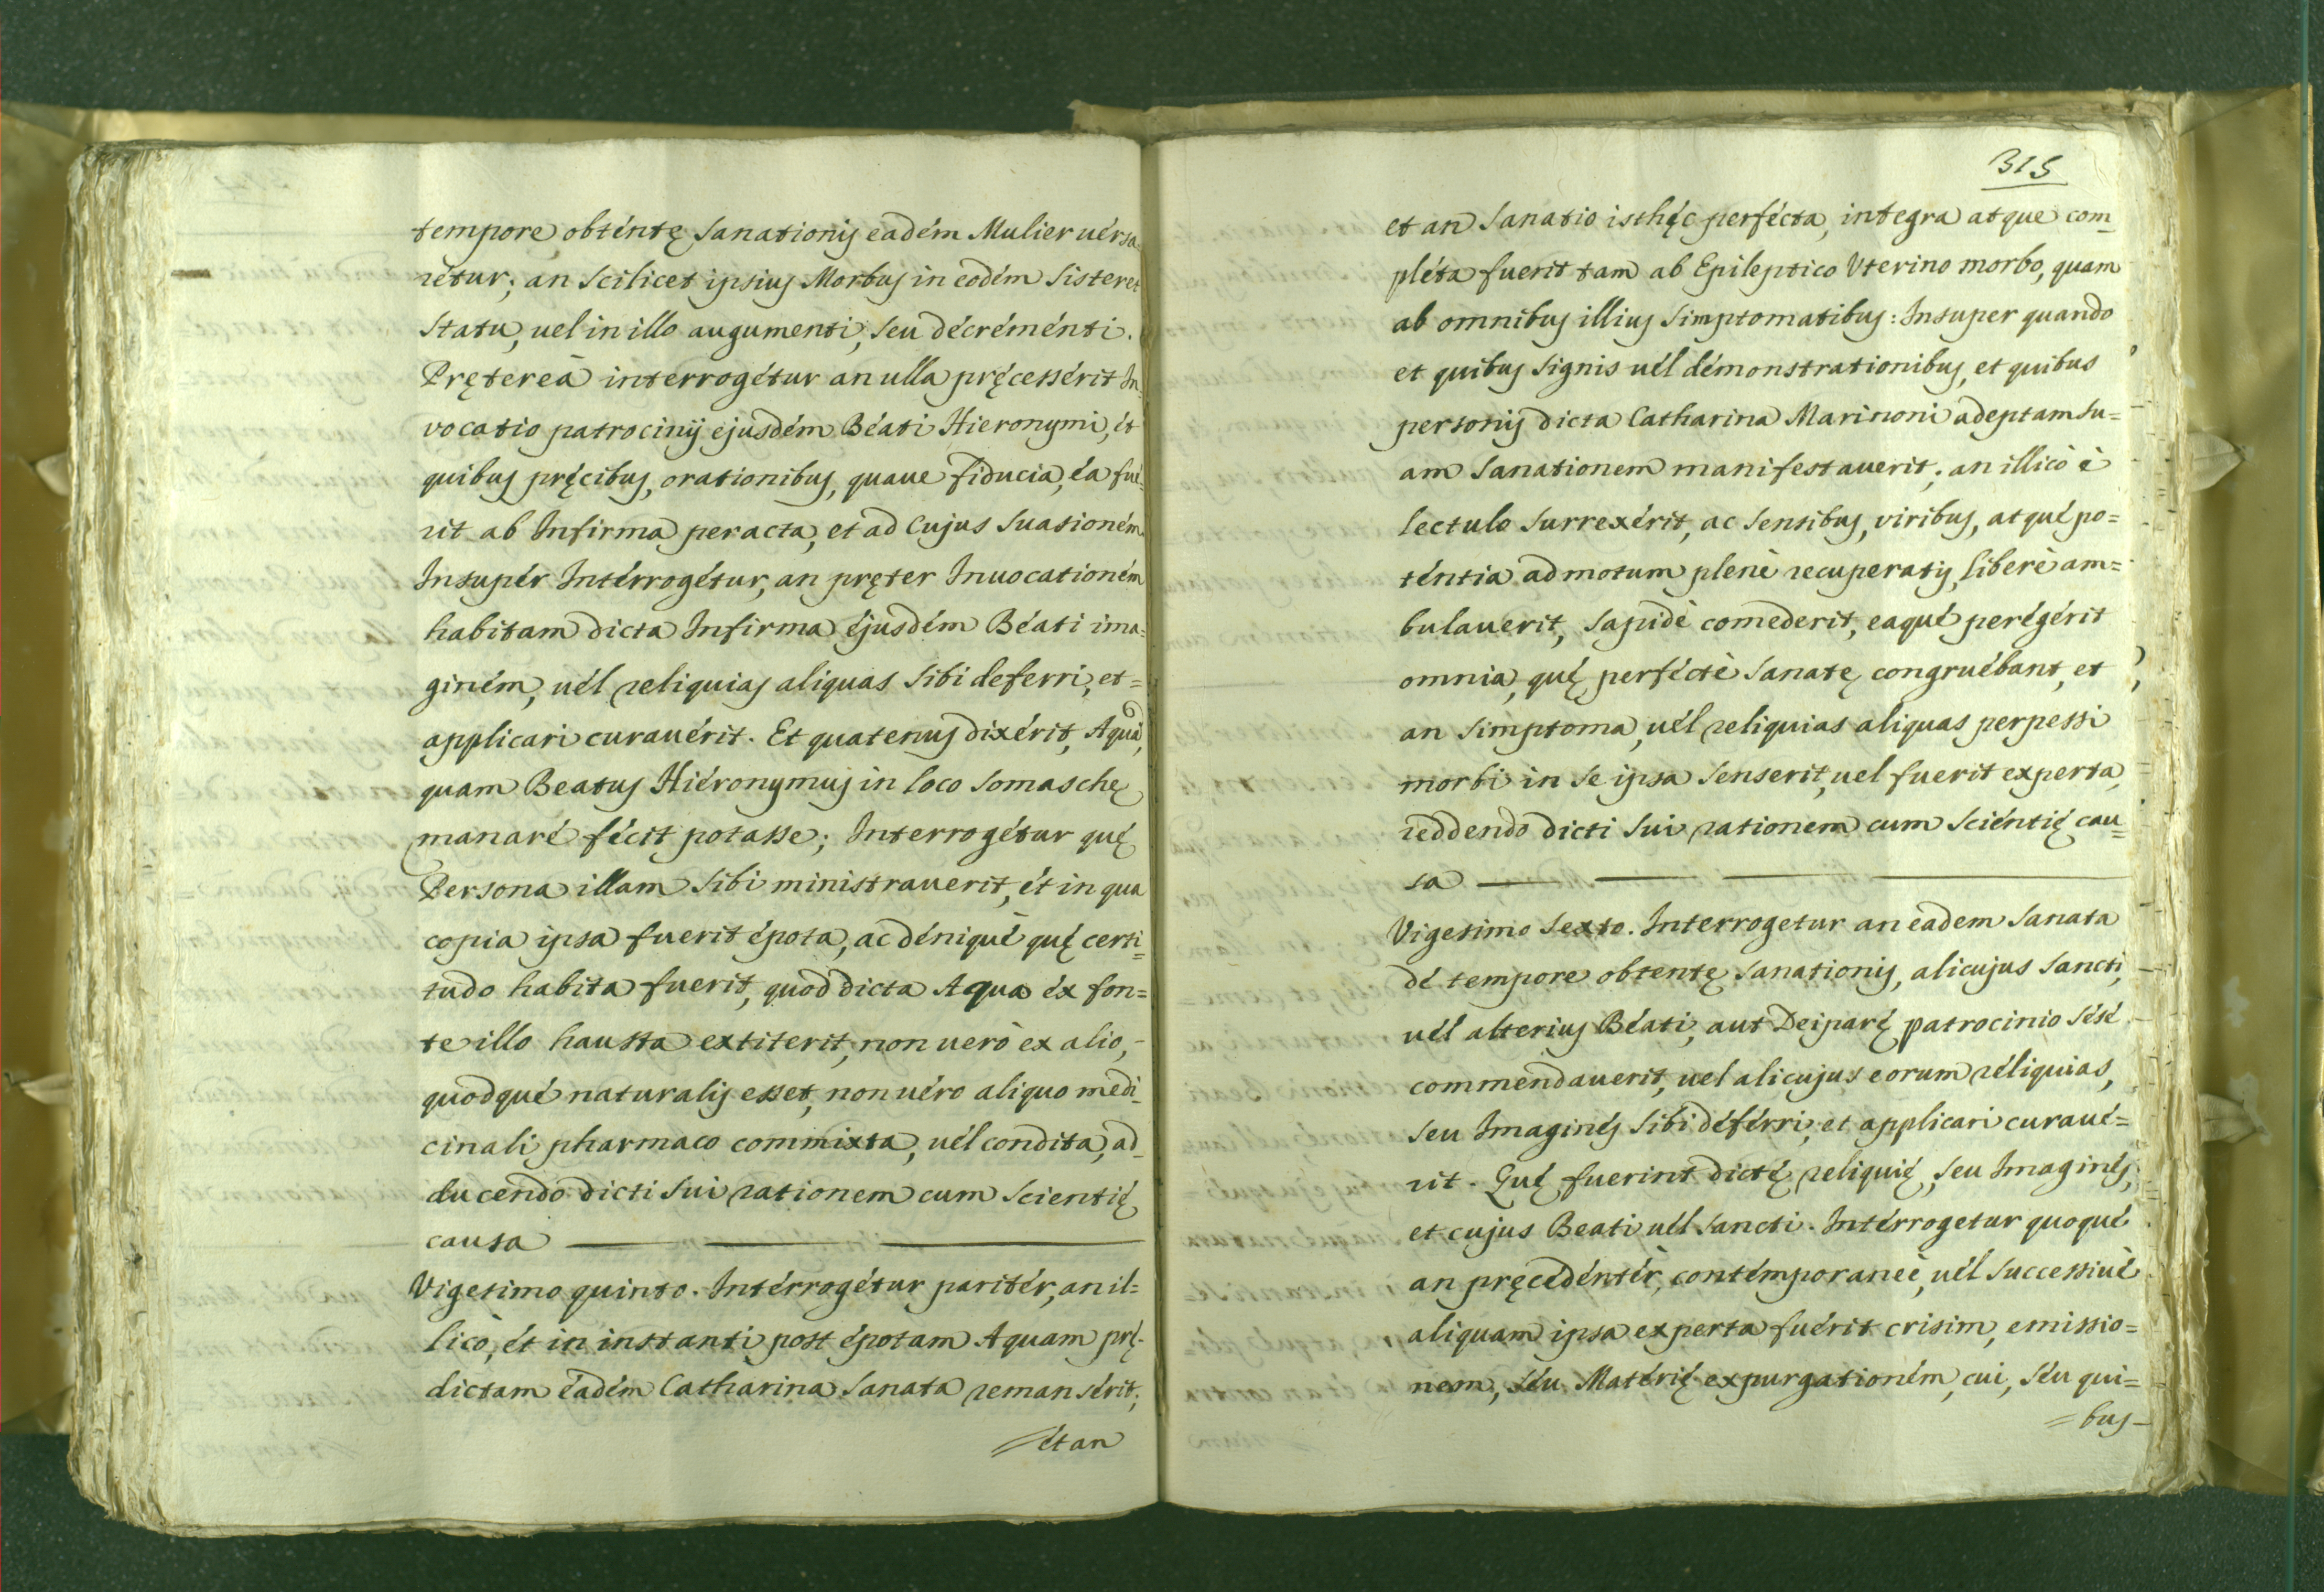 tempore obténtę sanationis eadém Mulier uérsa
retur; an scilicet ipsius Morbus in eodém sisteret
statu, uel in illo augumenti, seu décréménti.
Prętereà interrogétur an ulla pręcessérit In
vocatio patrocinij ejusdém Béati Hieronymi, ét
quibus pręcibus, orationibus, quaue fiducia, éa fué
rit ab Infirma peracta, et ad cujus suasioném
Insupér Intérrogétur, an pręter Inuocationém
habitam dicta Infirma éjusdém Béati ima=
giném, uél reliquias aliquas sibi deferri, et=
applicari curauérit. Et quatenus dixérit, Aquā,
quam Beatus Hiéronymus in loco Somaschę
manaré fécit potasse; Interrogétur quę
Persona illam sibi ministrauerit, ét in qua
copia ipsa fuerit épota, ac déniqué quę certi=
tudo habita fuerit, quod dicta Aqua éx fon=
te illo hausta extiterit, non uerò ex alio,-
quodqué naturalis esset, non uéro aliquo medi_
cinali pharmaco commixta, uél condita, ad_
ducendo dicti sui rationem cum scientię
causa
Vigesimo quinto. Intérrogétur paritér, an il=
licò, ét in instanti post épotam Aquam prę-
dictam éadém Catharina sanata remansérit;
ét an
315
et an sanatio isthęc perfécta, integra atque com_
pléta fuerit tam ab Epileptico Vterino morbo, quam
ab omnibus illius simptomatibus: Insuper quando
et quibus signis uél démonstrationibus, et quibus
personis dicta Catharina Marinoni adeptam su=
am sanationem manifestauerit; an illicò è
lectulo surrexérit, ac sensibus, viribus, atqué po=
téntia ad motum plenè recuperatis, liberè am=
bulauerit, sapidè comederit, eaqué perégérit
omnia, quę perféctè sanatę congruébant, et
an simptoma, uél reliquias aliquas perpessi
morbi in se ipsa senserit, uel fuerit experta,
reddendo dicti sui rationem cum sciéntię cau=
sa
Vigesimo sexto. Interrogetur an eadem sanata
dé tempore obtentę sanationis, alicujus Sancti,
uél alterius Béati, aut Deiparę patrocinio sésé
commendauerit, uel alicujus eorum réliquias,
seu Imaginés sibi déférri, et applicari curaué=
rit. Quę fuerint dictę reliquię, seu Imaginés,
et cujus Beati uél Sancti. Intérrogetur quoqué
an pręcedéntér, contémporaneè, uél successiuè
aliquam ipsa experta fuérit crisim, emissio=
nem, séu Matérię expurgationém, cui, séu qui=
=bus-